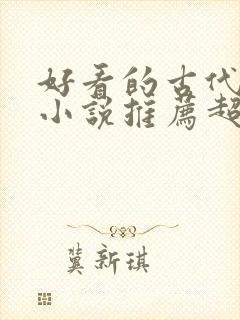 好看的古代
小说推荐超
冀新琪